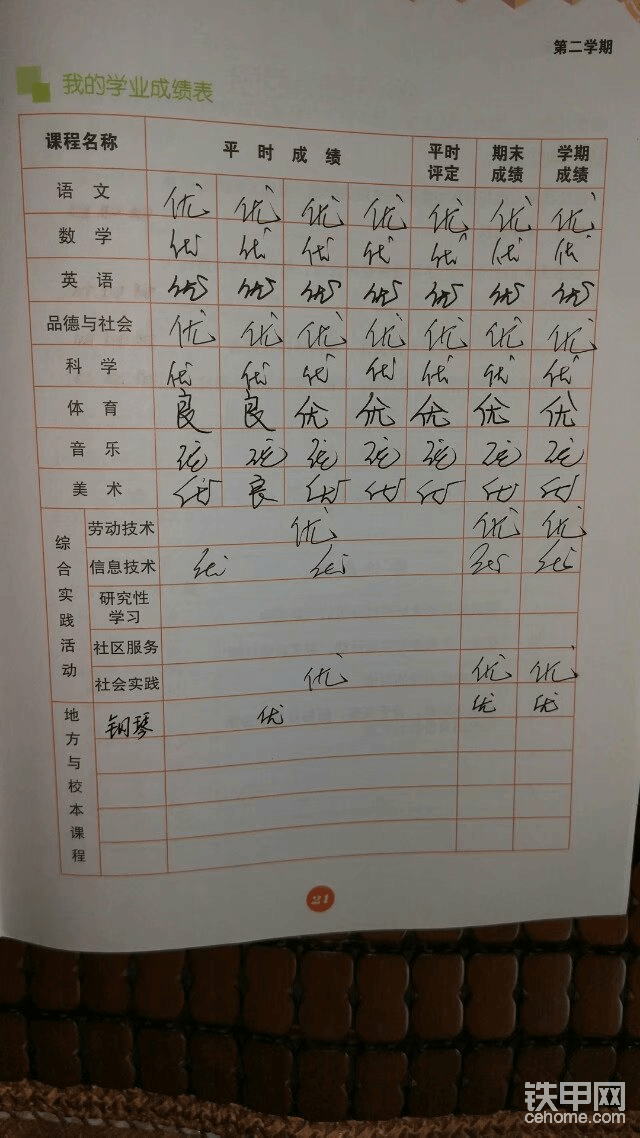 第二学期
我的学业成绩表
课程名称 平时成绩 平时评定 期末成绩 学期成绩
语文 优 优 优 优 优 优 优
数学 优 优 优 优 优 优 优
英语 优 优 优 优 优 优 优
品德与社会 优 优 优 优 优 优 优
科学 优 优 优 优 优 优 优
体育 良 良 优 优 优 优 优
音乐
美术 优 良 优 优 优 优 优
综合实践活动
劳动技术 优 优 优
信息技术
研究性学习
社区服务
社会实践 优 优 优
地方与校本课程
钢琴 优 优 优
21
铁甲网
cehome.com